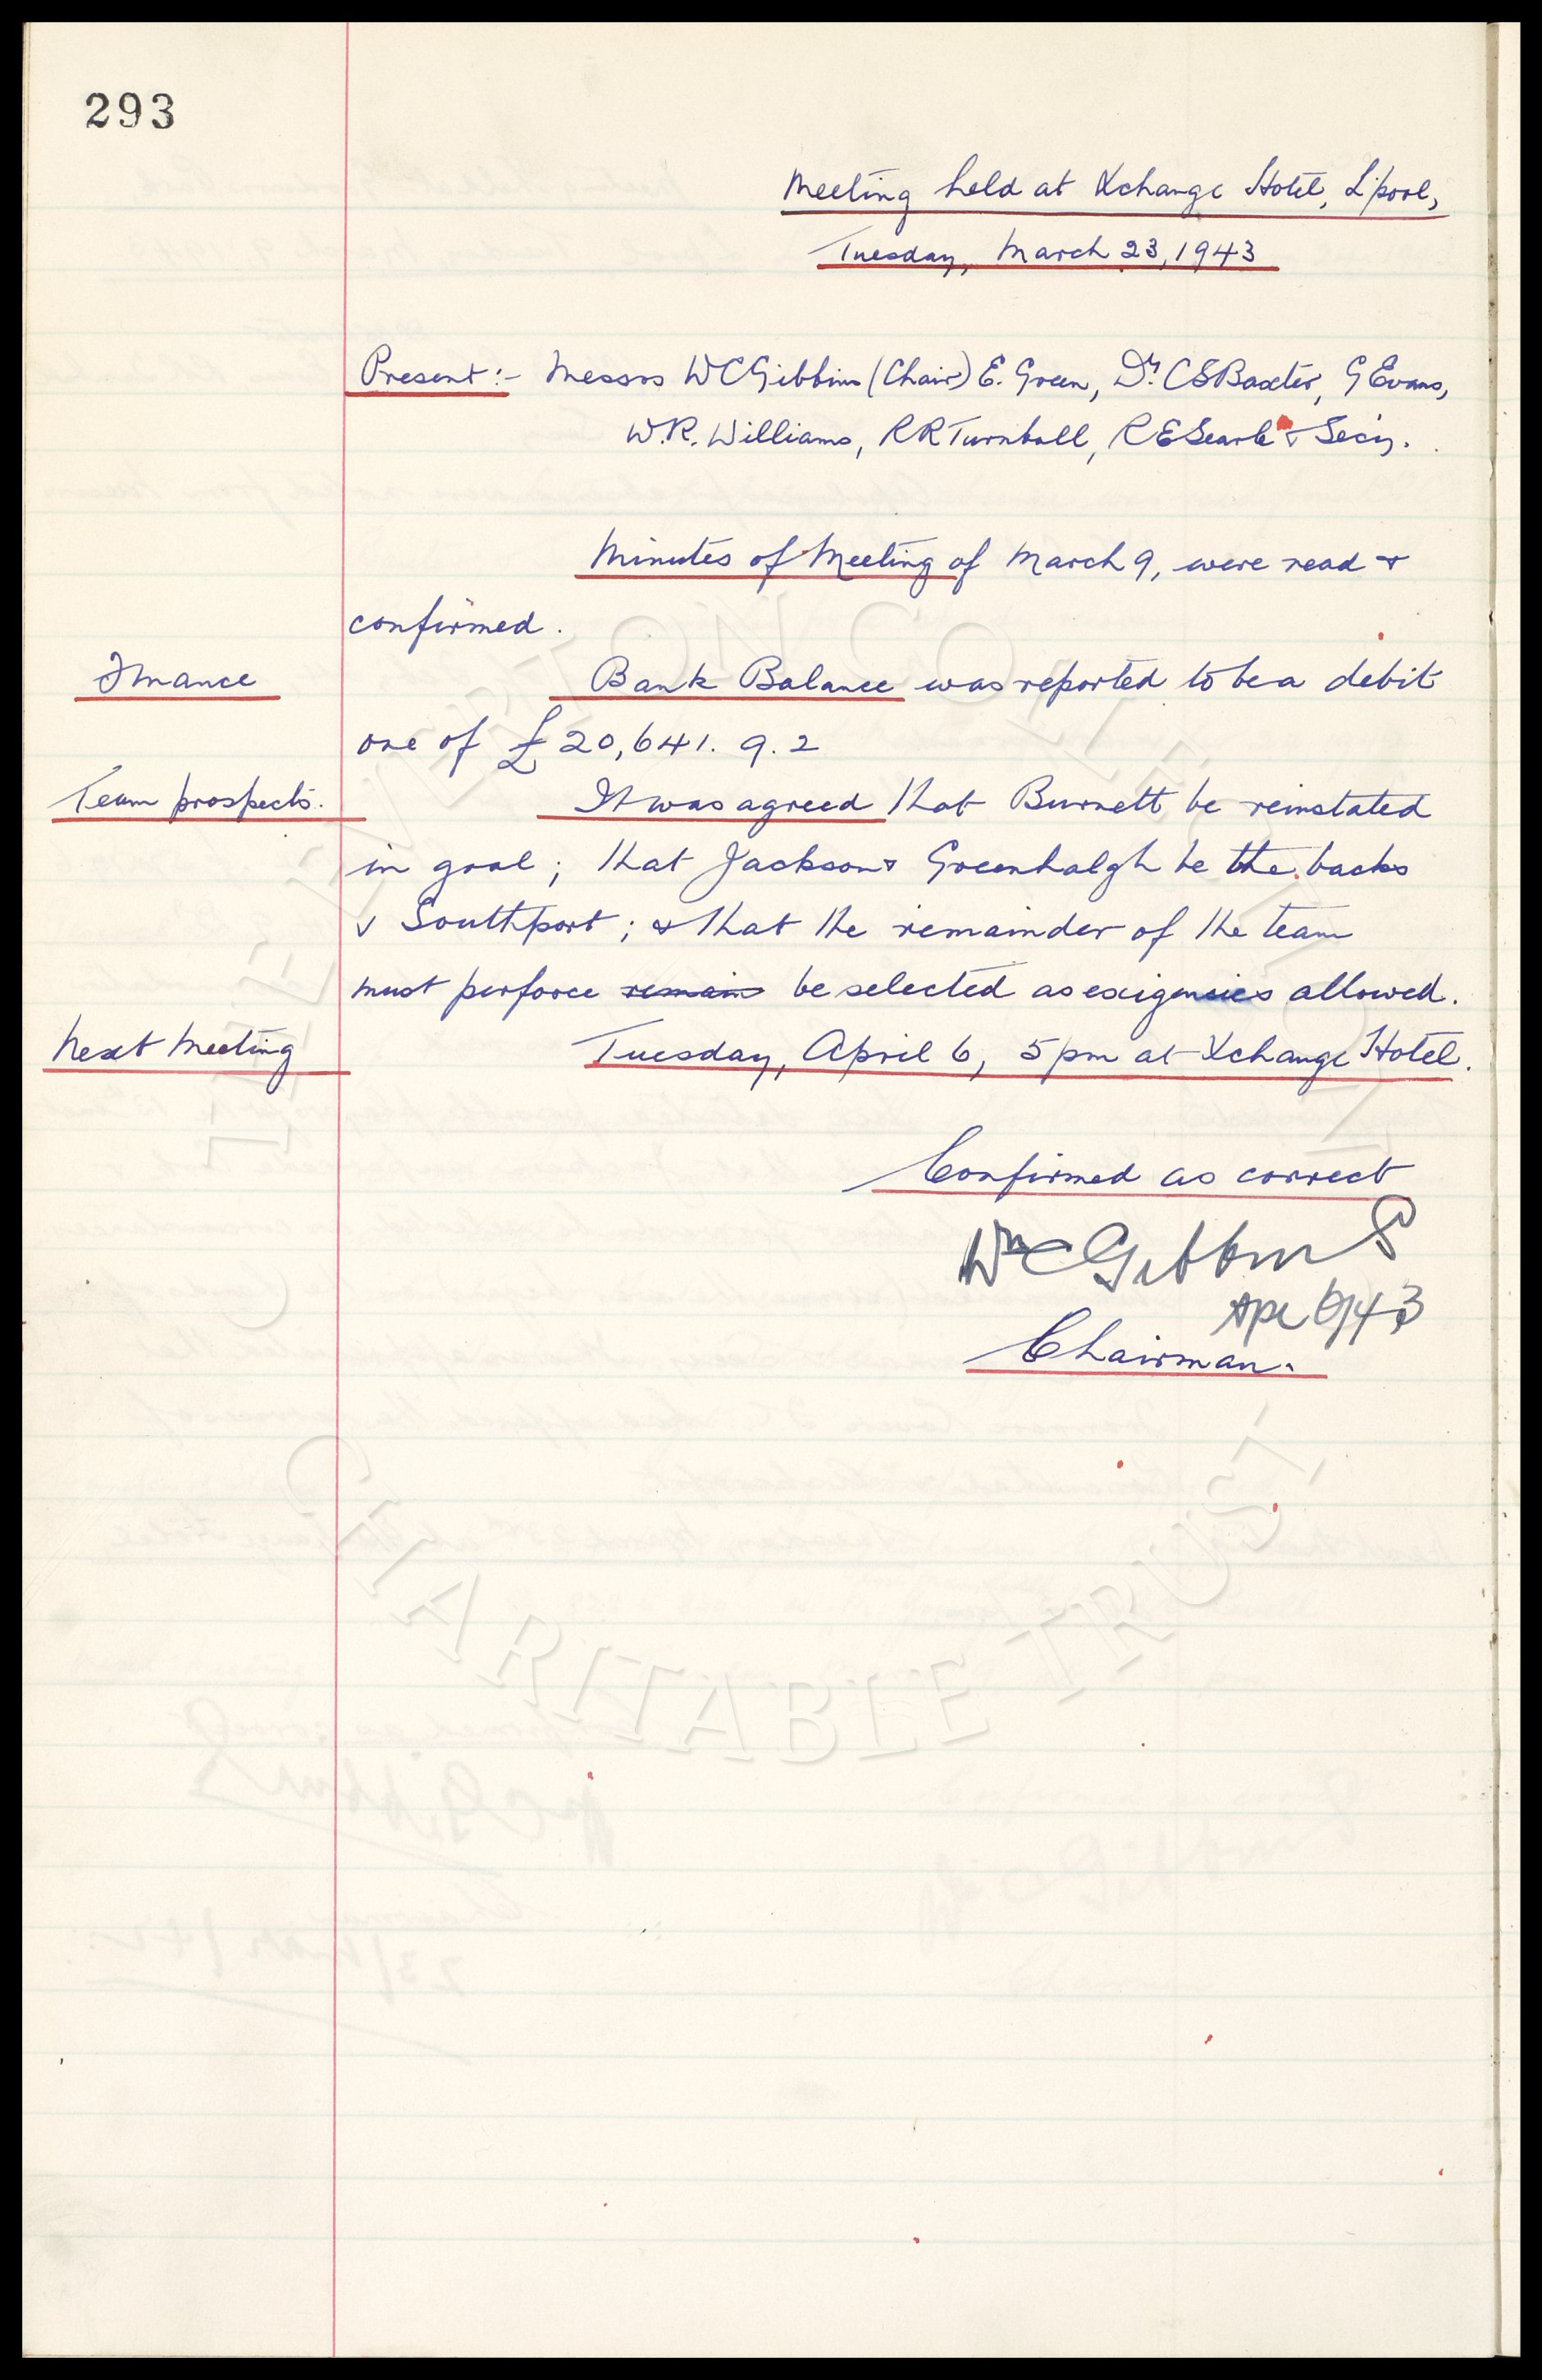 293
Meeting held at Xchange Hotel, L'pool,
Tuesday, March 23, 1943
Present:- Messrs W C Gibbins (Chair) E. Green, Dr. C S Baxter, G Evans,
W. R. Williams, R R Turnbull, R E Searle & Secy.
Minutes of Meeting of March 9, were read &
confirmed.
Finance
Bank Balance was reported to be a debit
one of £20,641. 9. 2
Team prospects.
It was agreed that Burnett be reinstated
in goal; that Jackson & Greenhalgh be the backs
v Southport; & that the remainder of the team
must perforce remain be selected as exigencies allowed.
Next Meeting
Tuesday, April 6, 5 pm at Xchange Hotel.
Confirmed as correct
Wm C Gibbins
Apl 6/43
Chairman.
EVERTON COLLECTION
CHARITABLE TRUST